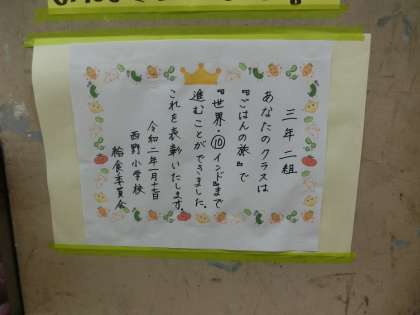 三年二組
あなたのクラスは
『ごはんの旅』で
『世界・⑩インド』まで
進むことができました。
これを表彰いたします。
令和二年一月十七日
西野小学校
給食委員会